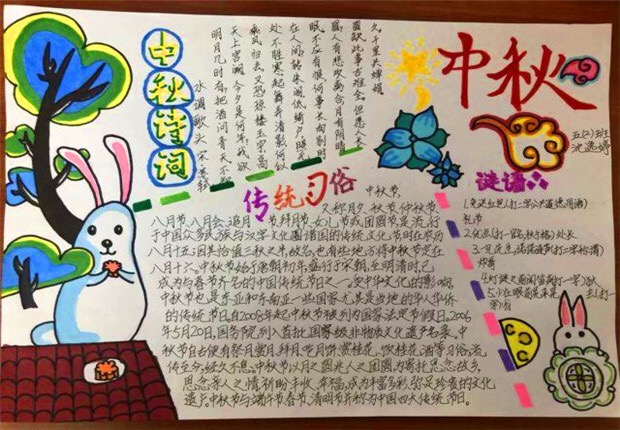 中秋
五(2)班
沈逸婷
中秋诗词
水调歌头 宋 苏轼
明月几时有,把酒问青天,不知
天上宫阙,今夕是何年,我欲
乘风归去,又恐琼楼玉宇,高
处不胜寒,起舞弄清影,何似
在人间,转朱阁,低绮户,照无
眠,不应有恨,何事长向别时
圆,人有悲欢离合,月有阴晴
圆缺,此事古难全,但愿人长
久,千里共婵娟
传统习俗
中秋节,
又称月夕、秋节、仲秋节、
八月节、八月会、追月节、拜月节、女儿节或团圆节,是流行
于中国众多民族与汉字文化圈诸国的传统文化节,时在农历
八月十五;因其恰值三秋之半,故名,也有些地方将中秋节定在
八月十六。中秋节始于唐朝初年,盛行于宋朝,至明清时,已
成为与春节齐名的中国传统节日之一。受中华文化的影响,
中秋节也是东亚和东南亚一些国家尤其是当地的华人华侨
的传统节日。自2008年起中秋节被列为国家法定节假日。2006
年5月20日,国务院列入首批国家级非物质文化遗产名录。中
秋节自古便有祭月、赏月、拜月、吃月饼、赏桂花、饮桂花酒等习俗,流
传至今,经久不息。中秋节以月之圆兆人之团圆,为寄托思念故乡,
思念亲人之情,祈盼丰收、幸福,成为丰富多彩、弥足珍贵的文化
遗产。中秋节与端午节、春节、清明节并称为中国四大传统节日。
谜语
礼节